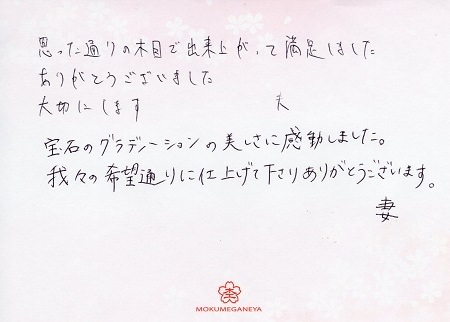 思った通りの木目で出来上がって満足しました
ありがとうございました
大切にします 夫
宝石のグラデーションの美しさに感動しました。
我々の希望通りに仕上げて下さりありがとうございます。
妻
MOKUMEGANEYA